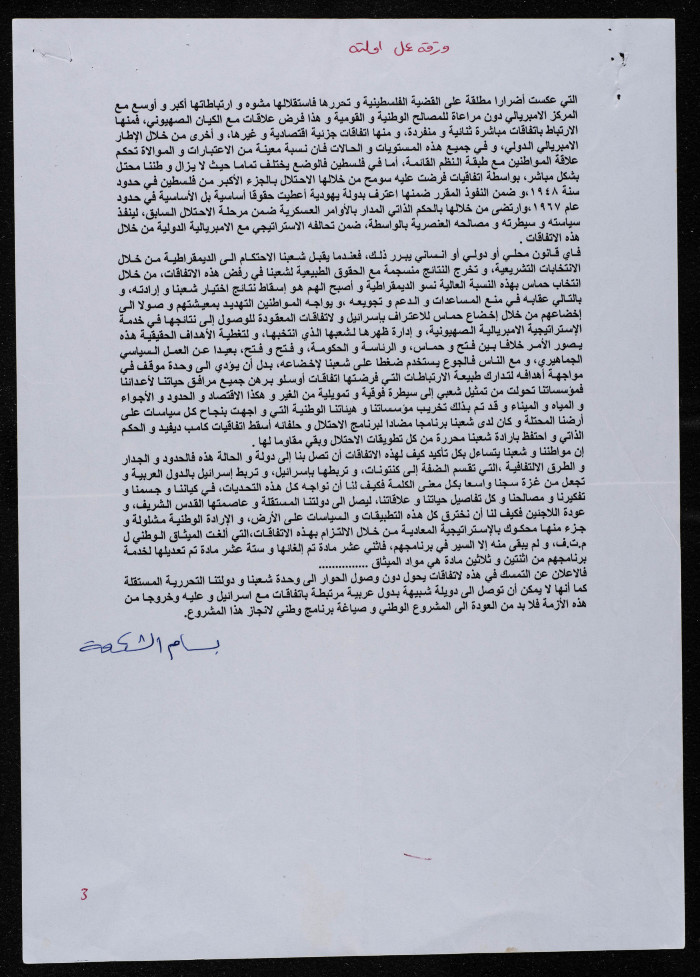 ورقة عمل اولته
التي عكست أضرارا مطلقة على القضية الفلسطينية و تحررها فاستقلالها مشوه و ارتباطاتها أكبر و أوسع مع
المركز الامبريالي دون مراعاة للمصالح الوطنية و القومية و هذا فرض علاقات مع الكيان الصهيوني، فمنها
الارتباط باتفاقات مباشرة ثنائية و منفردة، و منها اتفاقات جزئية اقتصادية و غيرها، و أخرى من خلال الإطار
الامبريالي الدولي، و في جميع هذه المستويات و الحالات فان نسبة معينة من الاعتبارات و الموالاة تحكم
علاقة المواطنين مع طبقة النظم القائمة، أما في فلسطين فالوضع يختلف تماما حيث لا يزال و طننا محتل
بشكل مباشر، بواسطة اتفاقيات فرضت عليه سومح من خلالها الاحتلال بالجزء الأكبر من فلسطين في حدود
سنة ١٩٤٨،و ضمن النفوذ المقرر ضمنها اعترف بدولة يهودية أعطيت حقوقا أساسية بل الأساسية في حدود
عام ١٩٦٧،وارتضى من خلالها بالحكم الذاتي المدار بالأوامر العسكرية ضمن مرحلة الاحتلال السابق، لينفذ
سياسته و سيطرته و مصالحه العنصرية بالواسطة، ضمن تحالفه الاستراتيجي مع الامبريالية الدولية من خلال
هذه الاتفاقات .
فأي قانون محلي أو دولي أو انساني يبرر ذلك، فعندما يقبل شعبنا الاحتكام الى الديمقراطية من خلال
الانتخابات التشريعية، و تخرج النتائج منسجمة مع الحقوق الطبيعية لشعبنا في رفض هذه الاتفاقات، من خلال
انتخاب حماس بهذه النسبة العالية نسو الديمقراطية و أصبح الهم هو إسقاط نتائج اختيار شعبنا و إرادته، و
بالتالي عقابه في منع المساعدات و الدعم و تجويعه ،و يواجه المواطنين التهديد بمعيشتهم و صولا الى
إخضاعهم من خلال إخضاع حماس للاعتراف بإسرائيل و لاتفاقات المعقودة للوصول إلى نتائجها في خدمة
الإستراتيجية الامبريالية الصهيونية، و إدارة ظهرها لشعبها الذي انتخبها، و لتغطية الأهداف الحقيقية هذه
يصور الأمر خلافا بين فتح و حماس، و الرئاسة و الحكومة، و فتح و فتح، بعيدا عن العمل السياسي
الجماهيري، و مع الناس فالجوع يستخدم ضغطا على شعبنا لإخضاعه، بدل أن يؤدي الى وحدة موقف في
مواجهة أهدافه لتدارك طبيعة الارتباطات التي فرضتها اتفاقات أوسلو برهن جميع مرافق حياتنا لأعدائنا
فمؤسساتنا تحولت من تمثيل شعبي إلى سيطرة فوقية و تمويلية من الغير و هكذا الاقتصاد و الحدود و الأجواء
و المياه و الميناء و قد تم بذلك تخريب مؤسساتنا و هيئاتنا الوطنية التي و اجهت بنجاح كل سياسات على
أرضنا المحتلة و كان لدى شعبنا برنامجا مضادا لبرنامج الاحتلال و حلفائه أسقط اتفاقيات كامب ديفيد و الحكم
الذاتي و احتفظ بارادة شعبنا محررة من كل تطويقات الاحتلال وبقي مقاوما لها .
إن مواطننا و شعبنا يتساءل بكل تأكيد كيف لهذه الاتفاقات أن تصل بنا إلى دولة و الحالة هذه فالحدود و الجدار
و الطرق الالتفافية ،التي تقسم الضفة إلى كنتونات، و تربطها بإسرائيل، و تربط إسرائيل بالدول العربية و
تجعل من غزة سجنا واسعا بكل معنى الكلمة فكيف لنا أن نواجه كل هذه التحديات، في كياننا و جسمنا و
تفكيرنا و مصالحنا و كل تفاصيل حياتنا و علاقاتنا، ليصل الى دولتنا المستقلة و عاصمتها القدس الشريف، و
عودة اللاجئين فكيف لنا أن نخترق كل هذه التطبيقات و السياسات على الأرض، و الإرادة الوطنية مشلولة و
جزء منها محكوك بالإستراتيجية المعادية من خلال الالتزام بهذه الاتفاقات،التي ألغت الميثاق الوطني ل
م.ت.ف، و لم يبقى منه إلا السير في برنامجهم، فاثني عشر مادة تم إلغائها و ستة عشر مادة تم تعديلها لخدمة
برنامجهم من اثنتين و ثلاثين مادة هي مواد الميثاق ...............
فالاعلان عن التمسك في هذه لاتفاقات يحول دون وصول الحوار الى وحدة شعبنا و دولتنا التحررية المستقلة
كما أنها لا يمكن أن توصل الى دويلة شبيهة بدول عربية مرتبطة باتفاقات مع اسرائيل و عليه وخروجا من
هذه الأزمة فلا بد من العودة الى المشروع الوطني و صياغة برنامج وطني لانجاز هذا المشروع.
بسام الشكعة
3